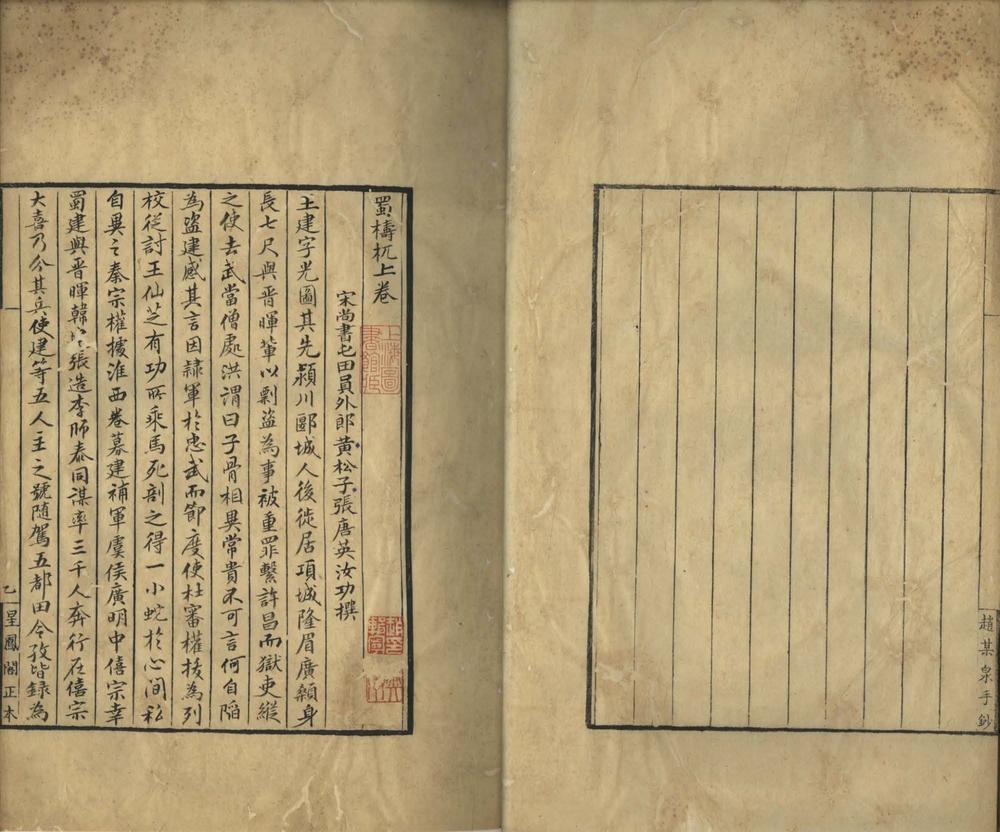 趙某泉手鈔
蜀檮杌上卷
上海圖
書館藏
宋尚書屯田員外郎黃松子張唐英汝功撰
王建字光圖其先潁川郾城人後徙居項城隆眉廣顙身
長七尺與晉暉軰以剽盜為事被重罪繫許昌而獄吏縱
之使去武當僧處洪謂曰子骨相異常貴不可言何自陷
為盜建感其言因隸軍於忠武而節度使杜審權拔為列
校從討王仙芝有功所乘馬死剖之得一小蛇於心間私
自異之秦宗權據淮西卷募建補軍虞侯廣明中僖宗幸
蜀建與晉暉韓張造李師泰同謀率三千人奔行在僖宗
大喜乃分其兵使建等五人主之號隨駕五都田令孜皆錄為
一
乙
星鳳閣正本